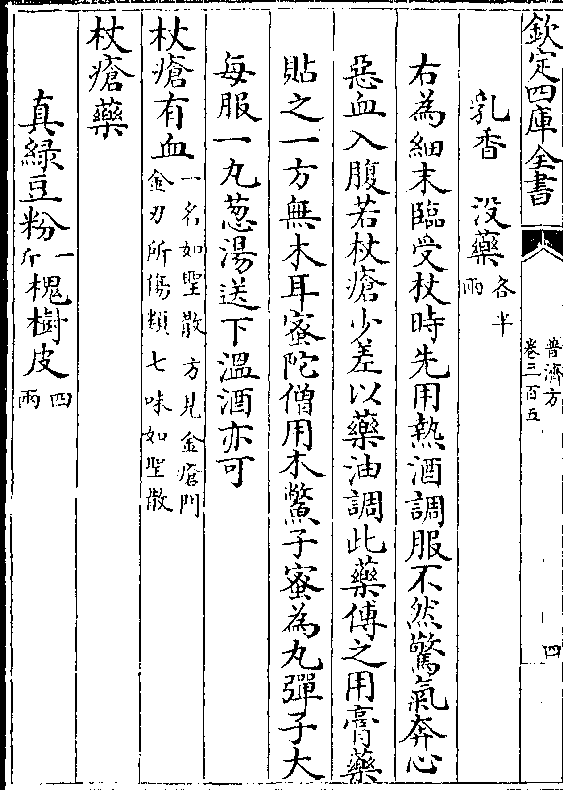 欽定四庫全書
普濟方
卷三百五
四
乳香 没藥各半兩
右為細末臨受杖時先用熱酒調服不然驚氣奔心
惡血入腹若杖瘡少差以藥油調此藥傅之用膏藥
貼之一方無木耳蜜陀僧用木鱉子蜜為丸彈子大
每服一丸葱湯送下溫酒亦可
杖瘡有血一名如聖散方見金瘡門金刃所傷類七味如聖散
杖瘡藥
真綠豆粉一斤 槐樹皮四兩